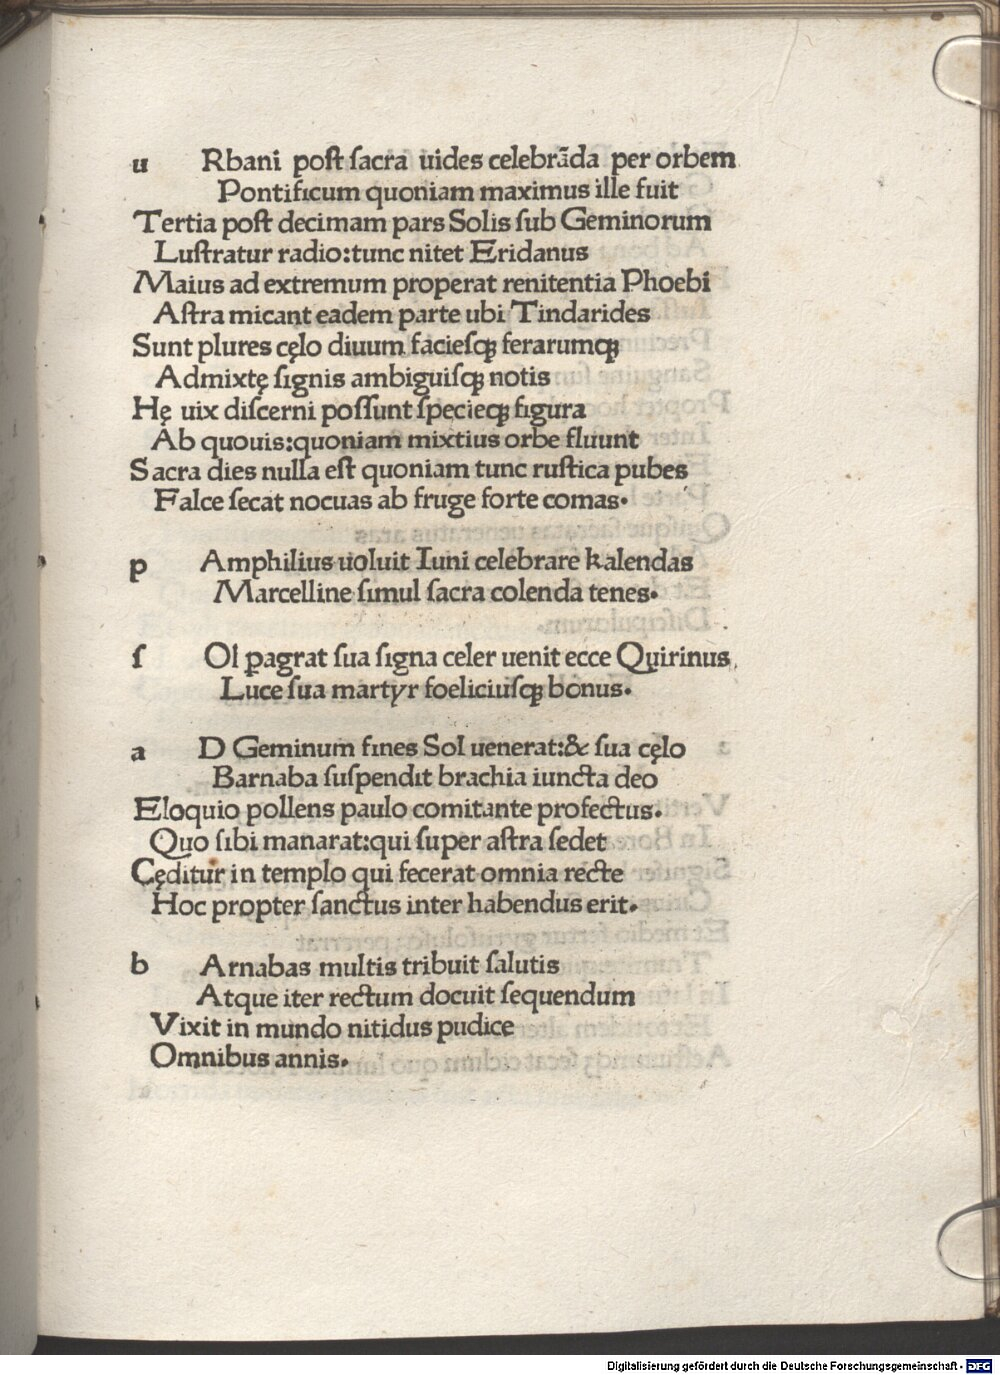 u Rbani poſt ſacra uides celebrāda per orbem
Pontificum quoniam maximus ille fuit
Tertia poſt decimam pars Solis ſub Geminorum
Luſtratur radio:tunc nitet Eridanus
Maius ad extremum properat renitentia Phoebi
Aſtra micant eadem parte ubi Tindarides
Sunt plures cęlo diuum facieſqꝫ ferarumqꝫ
Admixtę ſignis ambiguiſqꝫ notis
Hę uix diſcerni poſſunt ſpecieqꝫ figura
Ab quouis:quoniam mixtius orbe fluunt
Sacra dies nulla eſt quoniam tunc ruſtica pubes
Falce ſecat nocuas ab fruge forte comas.
p Amphilius uoluit Iuni celebrare kalendas
Marcelline ſimul ſacra colenda tenes.
ſ Ol ꝑagrat ſua ſigna celer uenit ecce Quirinus
Luce ſua martyr foeliciuſqꝫ bonus.
a D Geminum fines Sol uenerat:& ſua cęlo
Barnaba ſuſpendit brachia iuncta deo
Eloquio pollens paulo comitante profectus.
Quo ſibi manarat:qui ſuper aſtra ſedet
Cęditur in templo qui fecerat omnia recte
Hoc propter ſanctus inter habendus erit.
b Arnabas multis tribuit ſalutis
Atque iter rectum docuit ſequendum
Vixit in mundo nitidus pudice
Omnibus annis.
Digitalisierung gefördert durch die Deutsche Forschungsgemeinschaft - DFG